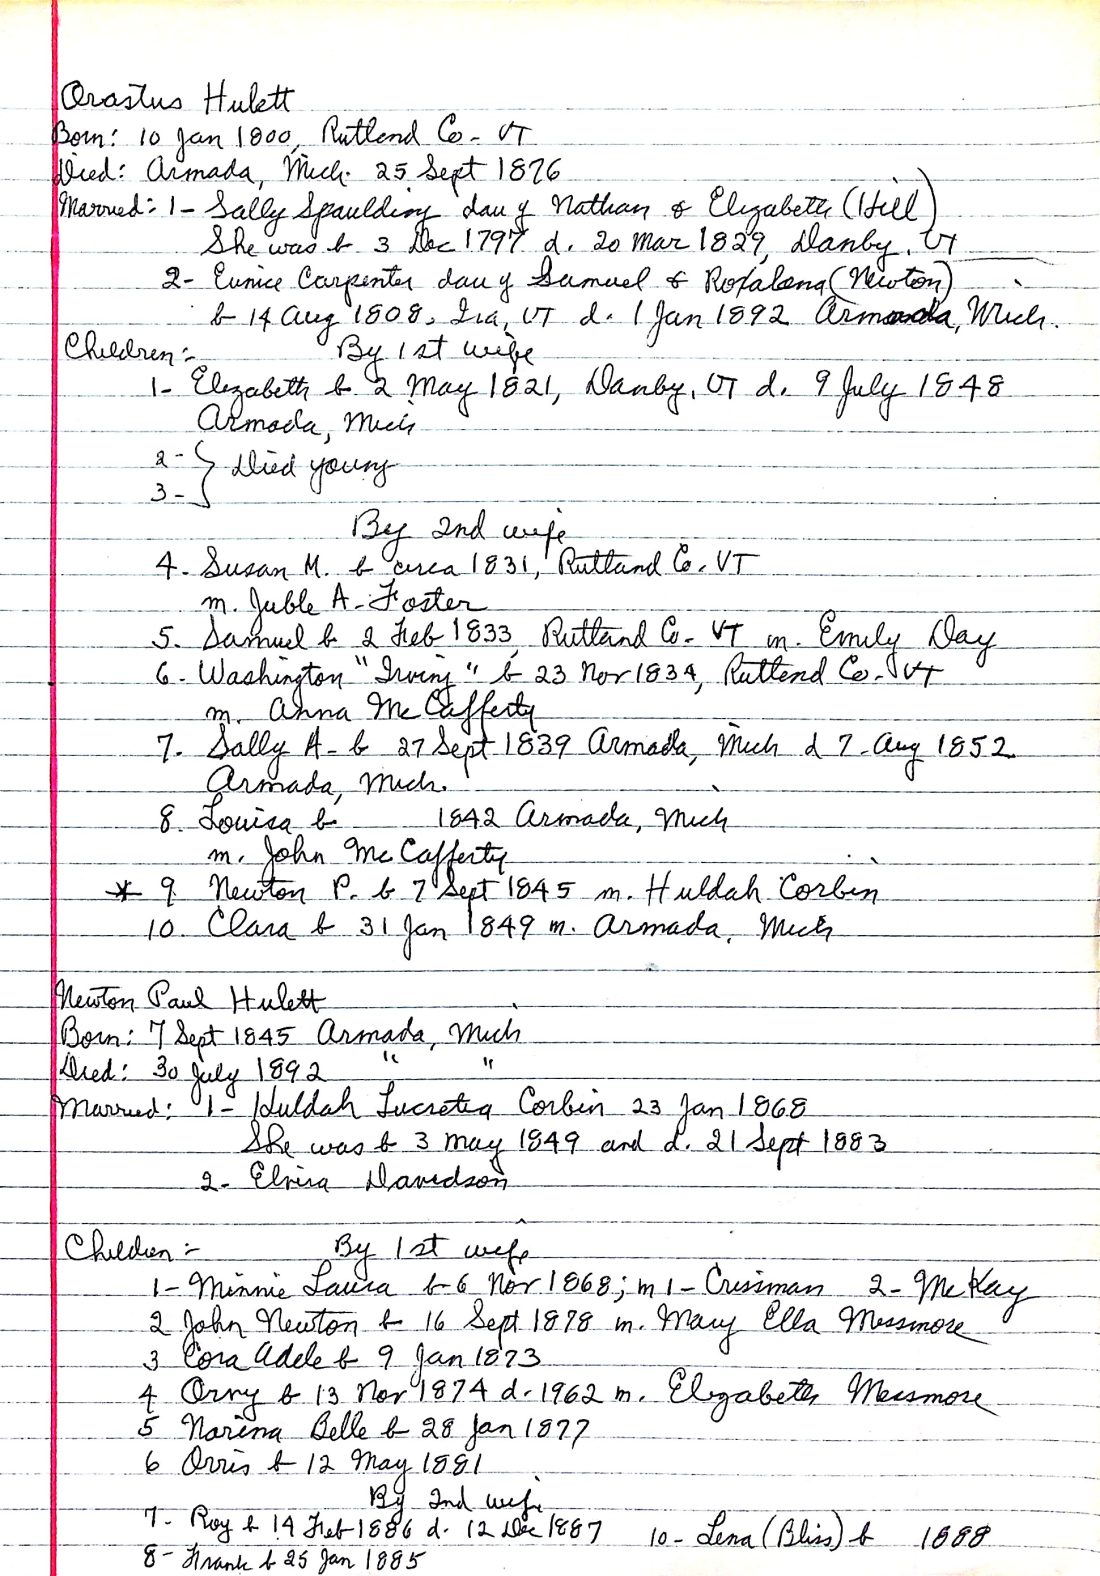 Orastus Hulett
Born: 10 Jan 1800, Rutlend Co - VT
Died: Armada, Mich. 25 Sept 1876
Married: 1 - Sally Spaulding dau of Nathan & Elizabeth (Hill)
She was b 3 Dec 1797 d. 20 Mar 1829, Danby, VT
2 - Eunice Carpenter dau of Samuel & Roxalena (Newton)
b 14 Aug 1808, Ira, VT d. 1 Jan 1892 Armada, Mich.
Children:- By 1st wife
1 - Elizabeth b 2 May 1821, Danby, VT d. 9 July 1848
Armada, Mich
2 - } Died young
3 -
By 2nd wife
4. Susan M. b circa 1831, Rutland Co. VT
m. Juble A. Foster
5. Samuel b 2 Feb 1833, Rutland Co - VT m. Emily Day
6. Washington "Irving" b 23 Nov 1834, Rutlend Co. VT
m. Anna McCafferty
7. Sally A - b 27 Sept 1839 Armada, Mich d 7 - Aug 1852
Armada, Mich.
8. Louisa b 1842 Armada, Mich
m. John McCafferty
* 9 Newton P. b 7 Sept 1845 m. Huldah Corbin
10. Clara b 31 Jan 1849 m. Armada, Mich
Newton Paul Hulett
Born: 7 Sept 1845 Armada, Mich
Died: 30 July 1892 " "
Married: 1 - Huldah Lucretia Corbin 23 Jan 1868
She was b 3 May 1849 and d. 21 Sept 1883
2 - Elvira Davidson
Children:- By 1st wife
1 - Minnie Laura b 6 Nov 1868; m 1 - Crissman 2 - McKay
2 John Newton b 16 Sept 1878 m. Mary Ella Messmore
3 Cora Adele b 9 Jan 1873
4 Orny b 13 Nov 1874 d. 1962 m. Elizabeth Messmore
5 Narina Belle b 28 Jan 1877
6 Orris b 12 May 1881
By 2nd wife
7 - Roy b 14 Feb 1886 d. 12 Dec 1887 10 - Lena (Bliss) b 1888
8 - Frank b 25 Jan 1885